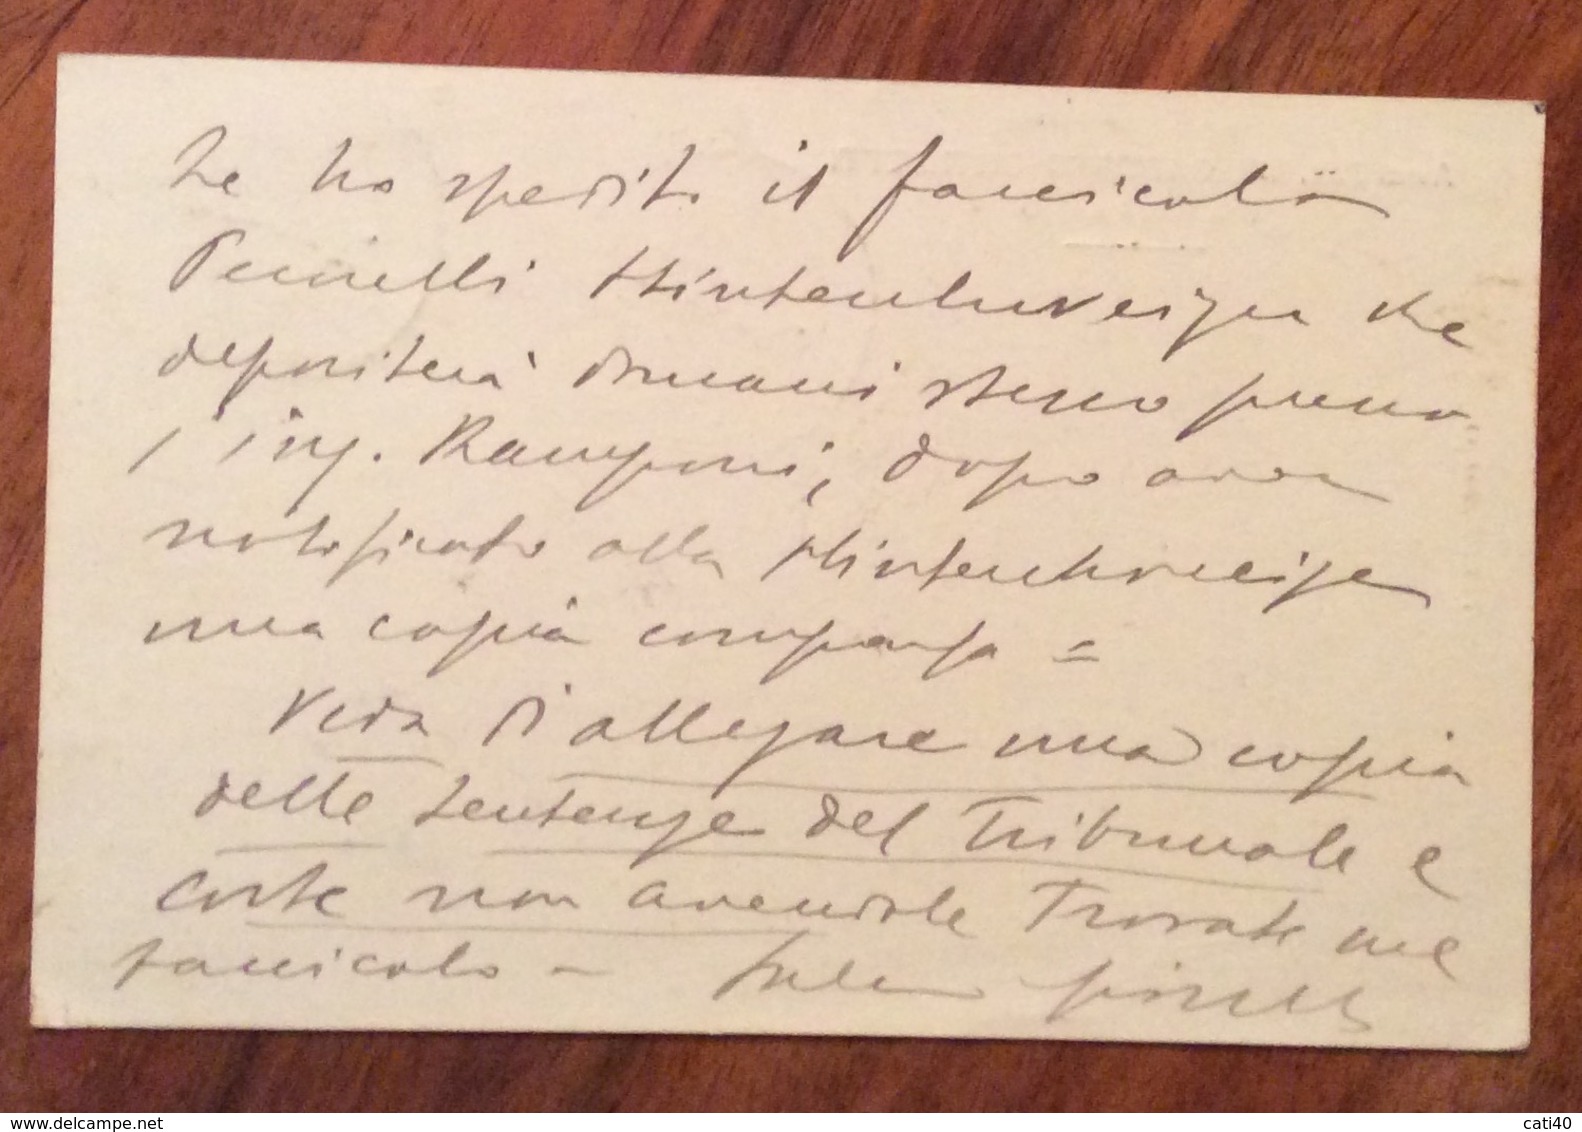 Le ho spedito il fascicolo
che
depositerà domani stesso presso
l'ing. Ramponi, dopo aver
notificato alla
una copia comparsa =
Veda di allegare una copia
delle sentenze del Tribunale e
Corte non avendole trovate nel
fascicolo -
www.delcampe.net
cati40